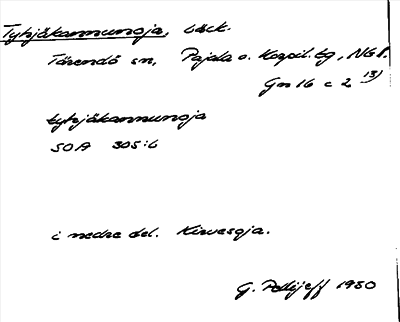 Tyhjäkannunoja, bäck.
Tärendö sn, Pajala o. Korpil. tg, Nbt.
Gm 16 c 2 13)
tyhjäkannunoja
SOA 305:6
i nedre del. Kirvesoja.
G. Pellijeff 1950